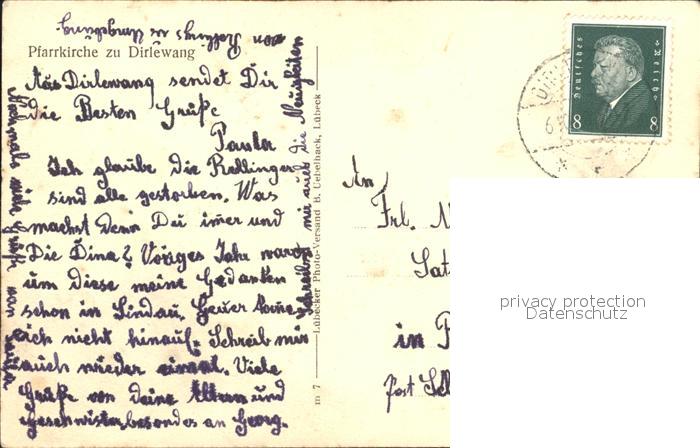 Pfarrkirche zu Dirlewang
Aus Dirlewang sendet Dir
die Besten Grüße
Paula
Ich glaube die Rellinger
sind alle gestorben. Was
machst denn Du imer und
Die Dina? Voriges Jahr warst
um diese meine Gedanken
schon in Lindau. Heuer kome
ich nicht hinauf. Schreib mir
auch wieder einmal. Viele
Grüße von deine Eltern und
Geschwister besonders an Georg.
Schreibst mir auch die Neuigkeiten
von
Umgebung.
Nochmals viele Grüße von
Lübecker Photo-Versand B. Uebelhack, Lübeck
m 7
Deutsches Reich
8 8
An
Frl.
in
Post
privacy protection
Datenschutz